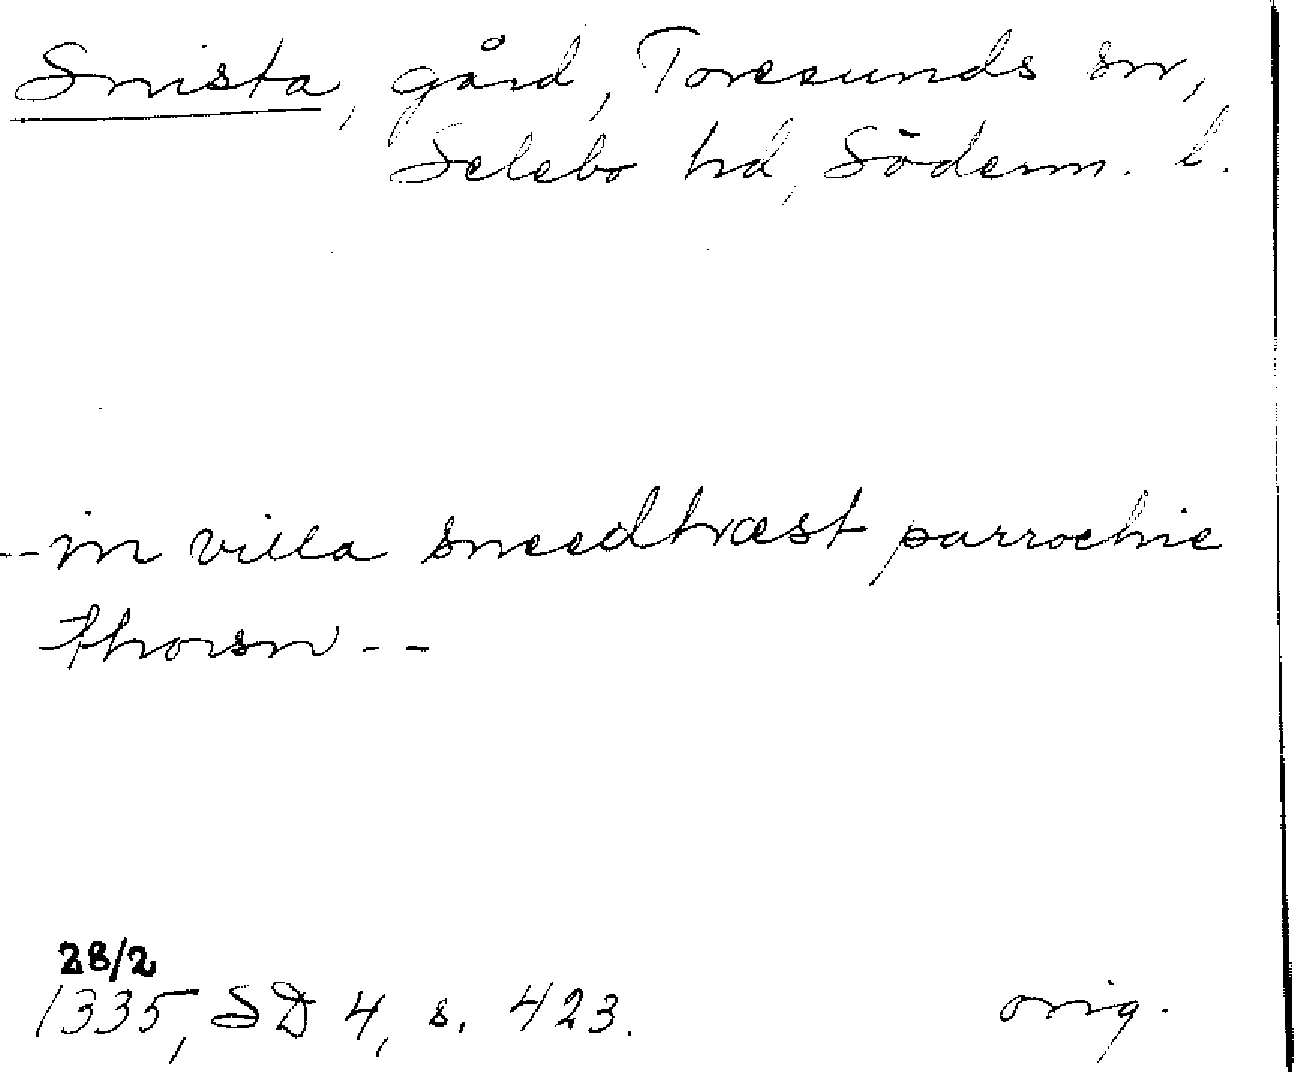 Smista, gård, Toresunds sn,
Selebo hd, Söderm. l.
--in villa smeedhræst parrochie
thorsn--
28/2
1335, SD 4, s. 423. orig.